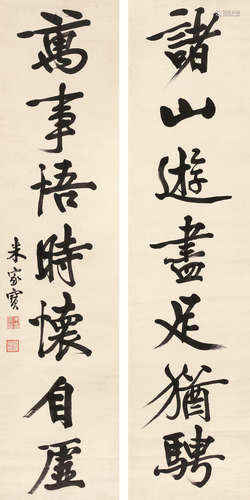 諸山遊盡足猶騁
萬事悟時懷自虛
朱家寶